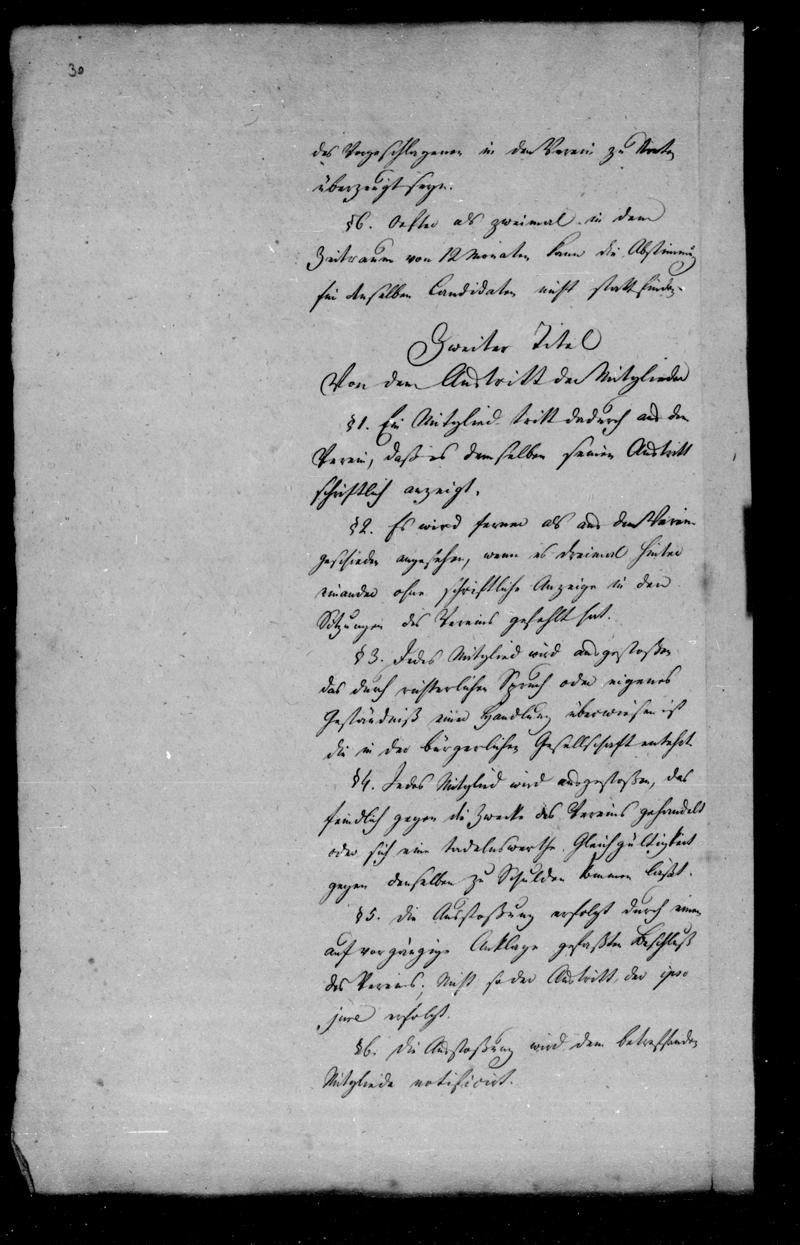 30
des Vorgeschlagenen in den Verein zu treten
überzeugt seyn.
§6. Oefter als zweimal in dem
Zeitraum von 12 Monaten kann die Abstimmung
für denselben Candidaten nicht statt finden.
Zweiter Titel
Von dem Austritt der Mitglieder
§1. Ein Mitglied tritt dadurch aus dem
Verein, daß es demselben seinen Austritt
schriftlich anzeigt.
§2. Es wird ferner als aus dem Verein
geschieden angesehen, wenn es dreimal hinter
einander ohne schriftliche Anzeige in den
Sitzungen des Vereins gefehlt hat.
§3. Jedes Mitglied wird ausgestoßen
das durch richterlichen Spruch oder eigenes
Geständniß einer Handlung überwiesen ist
die in der bürgerlichen Gesellschaft entehrt.
§4. Jedes Mitglied wird ausgestoßen, das
feindlich gegen die Zwecke des Vereins gehandelt
oder sich eine tadelnswerthe Gleichgültigkeit
gegen denselben zu Schulden kommen läßt.
§5. Die Ausstoßung erfolgt durch einen
auf vorgängige Anklage gefaßten Beschluß
des Vereins; Nicht so der Austritt, der ipso
jure erfolgt.
§6. Die Ausstoßung wird dem betreffenden
Mitgliede notificirt.